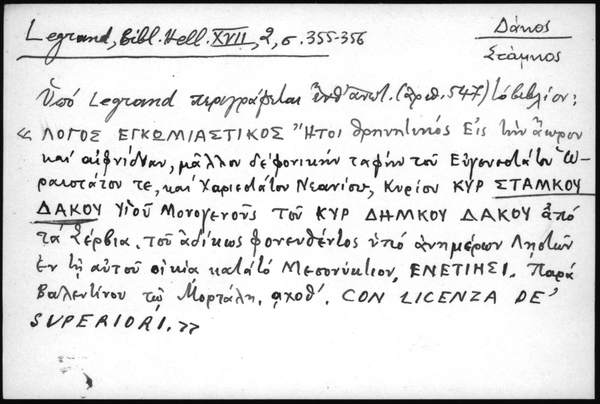 Legrand, Bibl. Hell. XVII, 2, σ. 355-356
Δάκος
Στάμκος
Ὑπό Legrand περιγράφεται ἐνθ' ἀνωτ. (ἀριθ. 547) τό βιβλίον:
« ΛΟΓΟΣ ΕΓΚΩΜΙΑΣΤΙΚΟΣ Ἤτοι θρηνητικός Εἰς τήν ἄωρον
καί αἰφνίδιαν, μᾶλλον δέ φονικήν ταφήν τοῦ Εὐγενεστάτου Ὡ-
ραιοτάτου τε, καί Χαριεστάτου Νεανίου, Κυρίου ΚΥΡ ΣΤΑΜΚΟΥ
ΔΑΚΟΥ Υἱοῦ Μονογενοῦς τοῦ ΚΥΡ ΔΗΜΚΟΥ ΔΑΚΟΥ ἀπό
τά Σέρβια, τοῦ ἀδίκως φονευθέντος ὑπό ἀνημέρων Ληστῶν
ἐν τῇ αὐτοῦ οἰκίᾳ κατά τό Μεσονύκτιον, ΕΝΕΤΙΗΣΙ. Παρά
Βαλεντίνου τῷ Μορτάλῃ, αχοθ'. CON LICENZA DE'
SUPERIORI. »